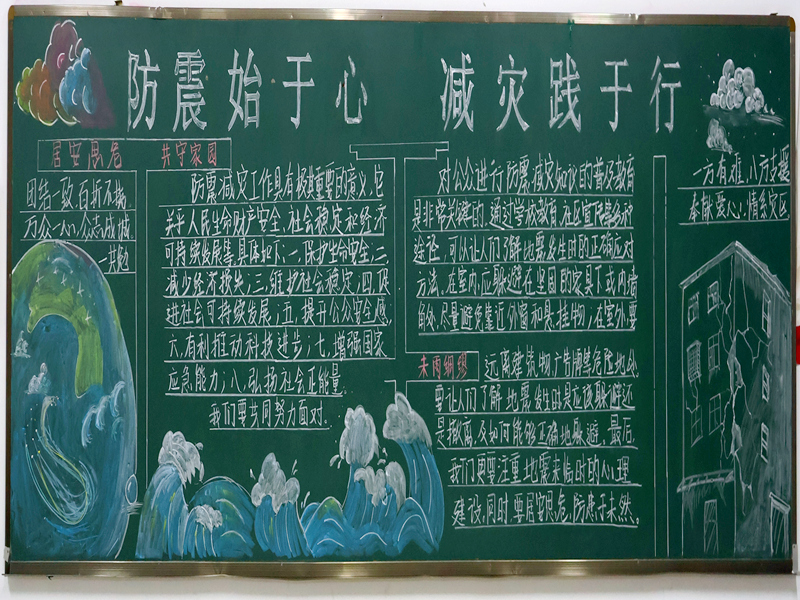 防震始于心 减灾践于行
居安思危 共守家园
团结一致百折不挠,
万众一心众志成城
共勉
防震减灾工作具有极其重要的意义,它
关乎人民生命财产安全,社会稳定和经济
可持续发展等,具体如下:一,保护生命安全;二
减少经济损失;三,维护社会稳定;四,促
进社会可持续发展;五,提升公众安全感,
六,有利推动科技进步;七,增强国家
应急能力;八,弘扬社会正能量。
我们要共同努力面对。
对公众进行防震减灾知识的普及教育
是非常关键的,通过学校教育,社区宣传等多种
途径,可以让人们了解地震发生时的正确应对
方法,在室内,应躲避在坚固的家具下或内墙
角处,尽量避免靠近外窗和悬挂物;在室外,要
未雨绸缪
远离建筑物,广告牌等危险地带,
要让人们了解地震发生时是应该躲避还
是撤离,及如何能够正确地躲避。最后,
我们更要注重地震来临时的心理
建设,同时,要居安思危,防患于未然。
一方有难,八方支援
奉献爱心,情系灾区